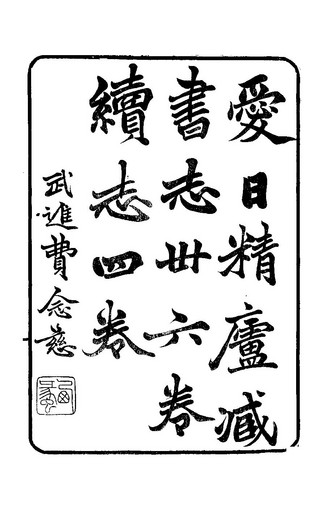 愛日精廬臧
書志卅六卷
續志四卷
武進費念慈